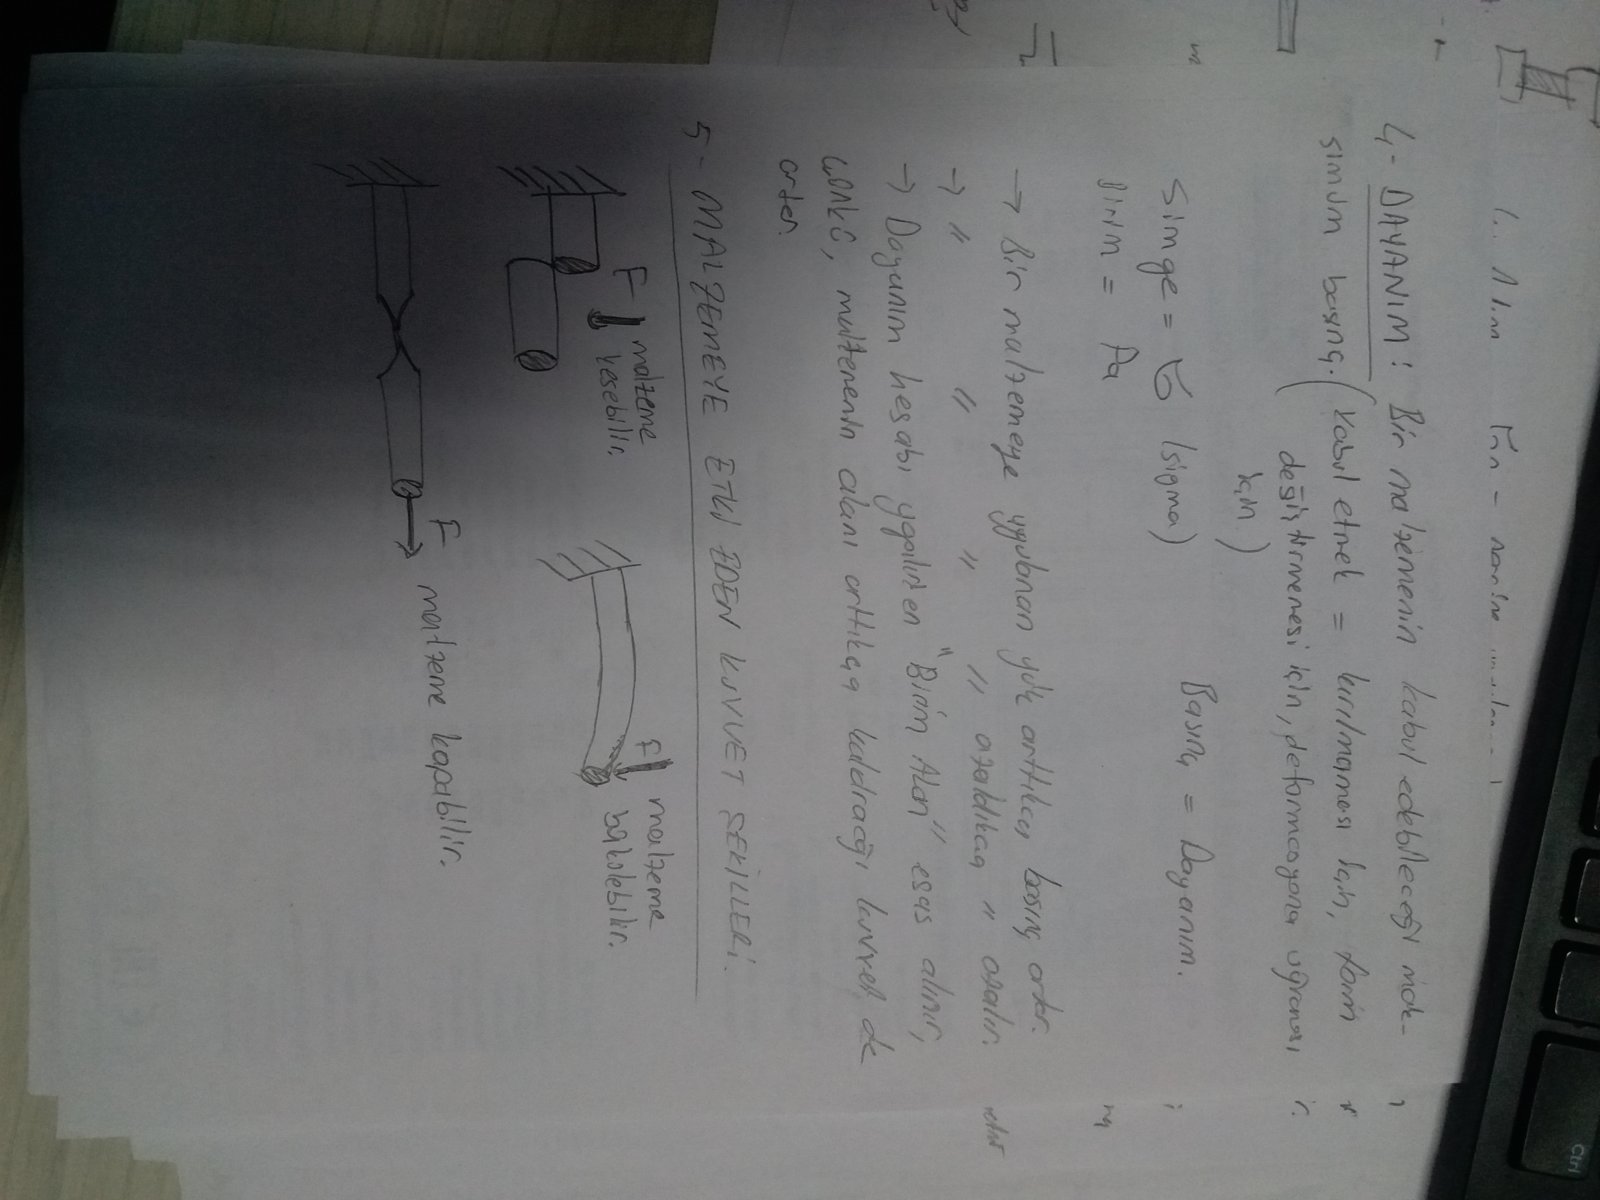 4- DAYANIM: Bir malzemenin kabul edebileceği mak-
simum basınç. (Kabul etmek = kırılmaması için, form
değiştirmemesi için, deformasyona uğraması
için)
Simge = σ (sigma) Basınç = Dayanım.
Birim = Pa
→ Bir malzemeye uygulanan yük arttıkça basınç artar.
→ " " " " azaldıkça " azalır.
→ Dayanım hesabı yapılırken "Birim Alan" esas alınır,
çünkü, malzemenin alanı arttıkça kaldıracağı kuvvet de
artar.
5- MALZEMEYE ETKİ EDEN KUVVET ŞEKİLLERİ.
F malzeme
kesebilir.
F malzeme
bükülebilir.
F
malzeme kopabilir.
Ctrl